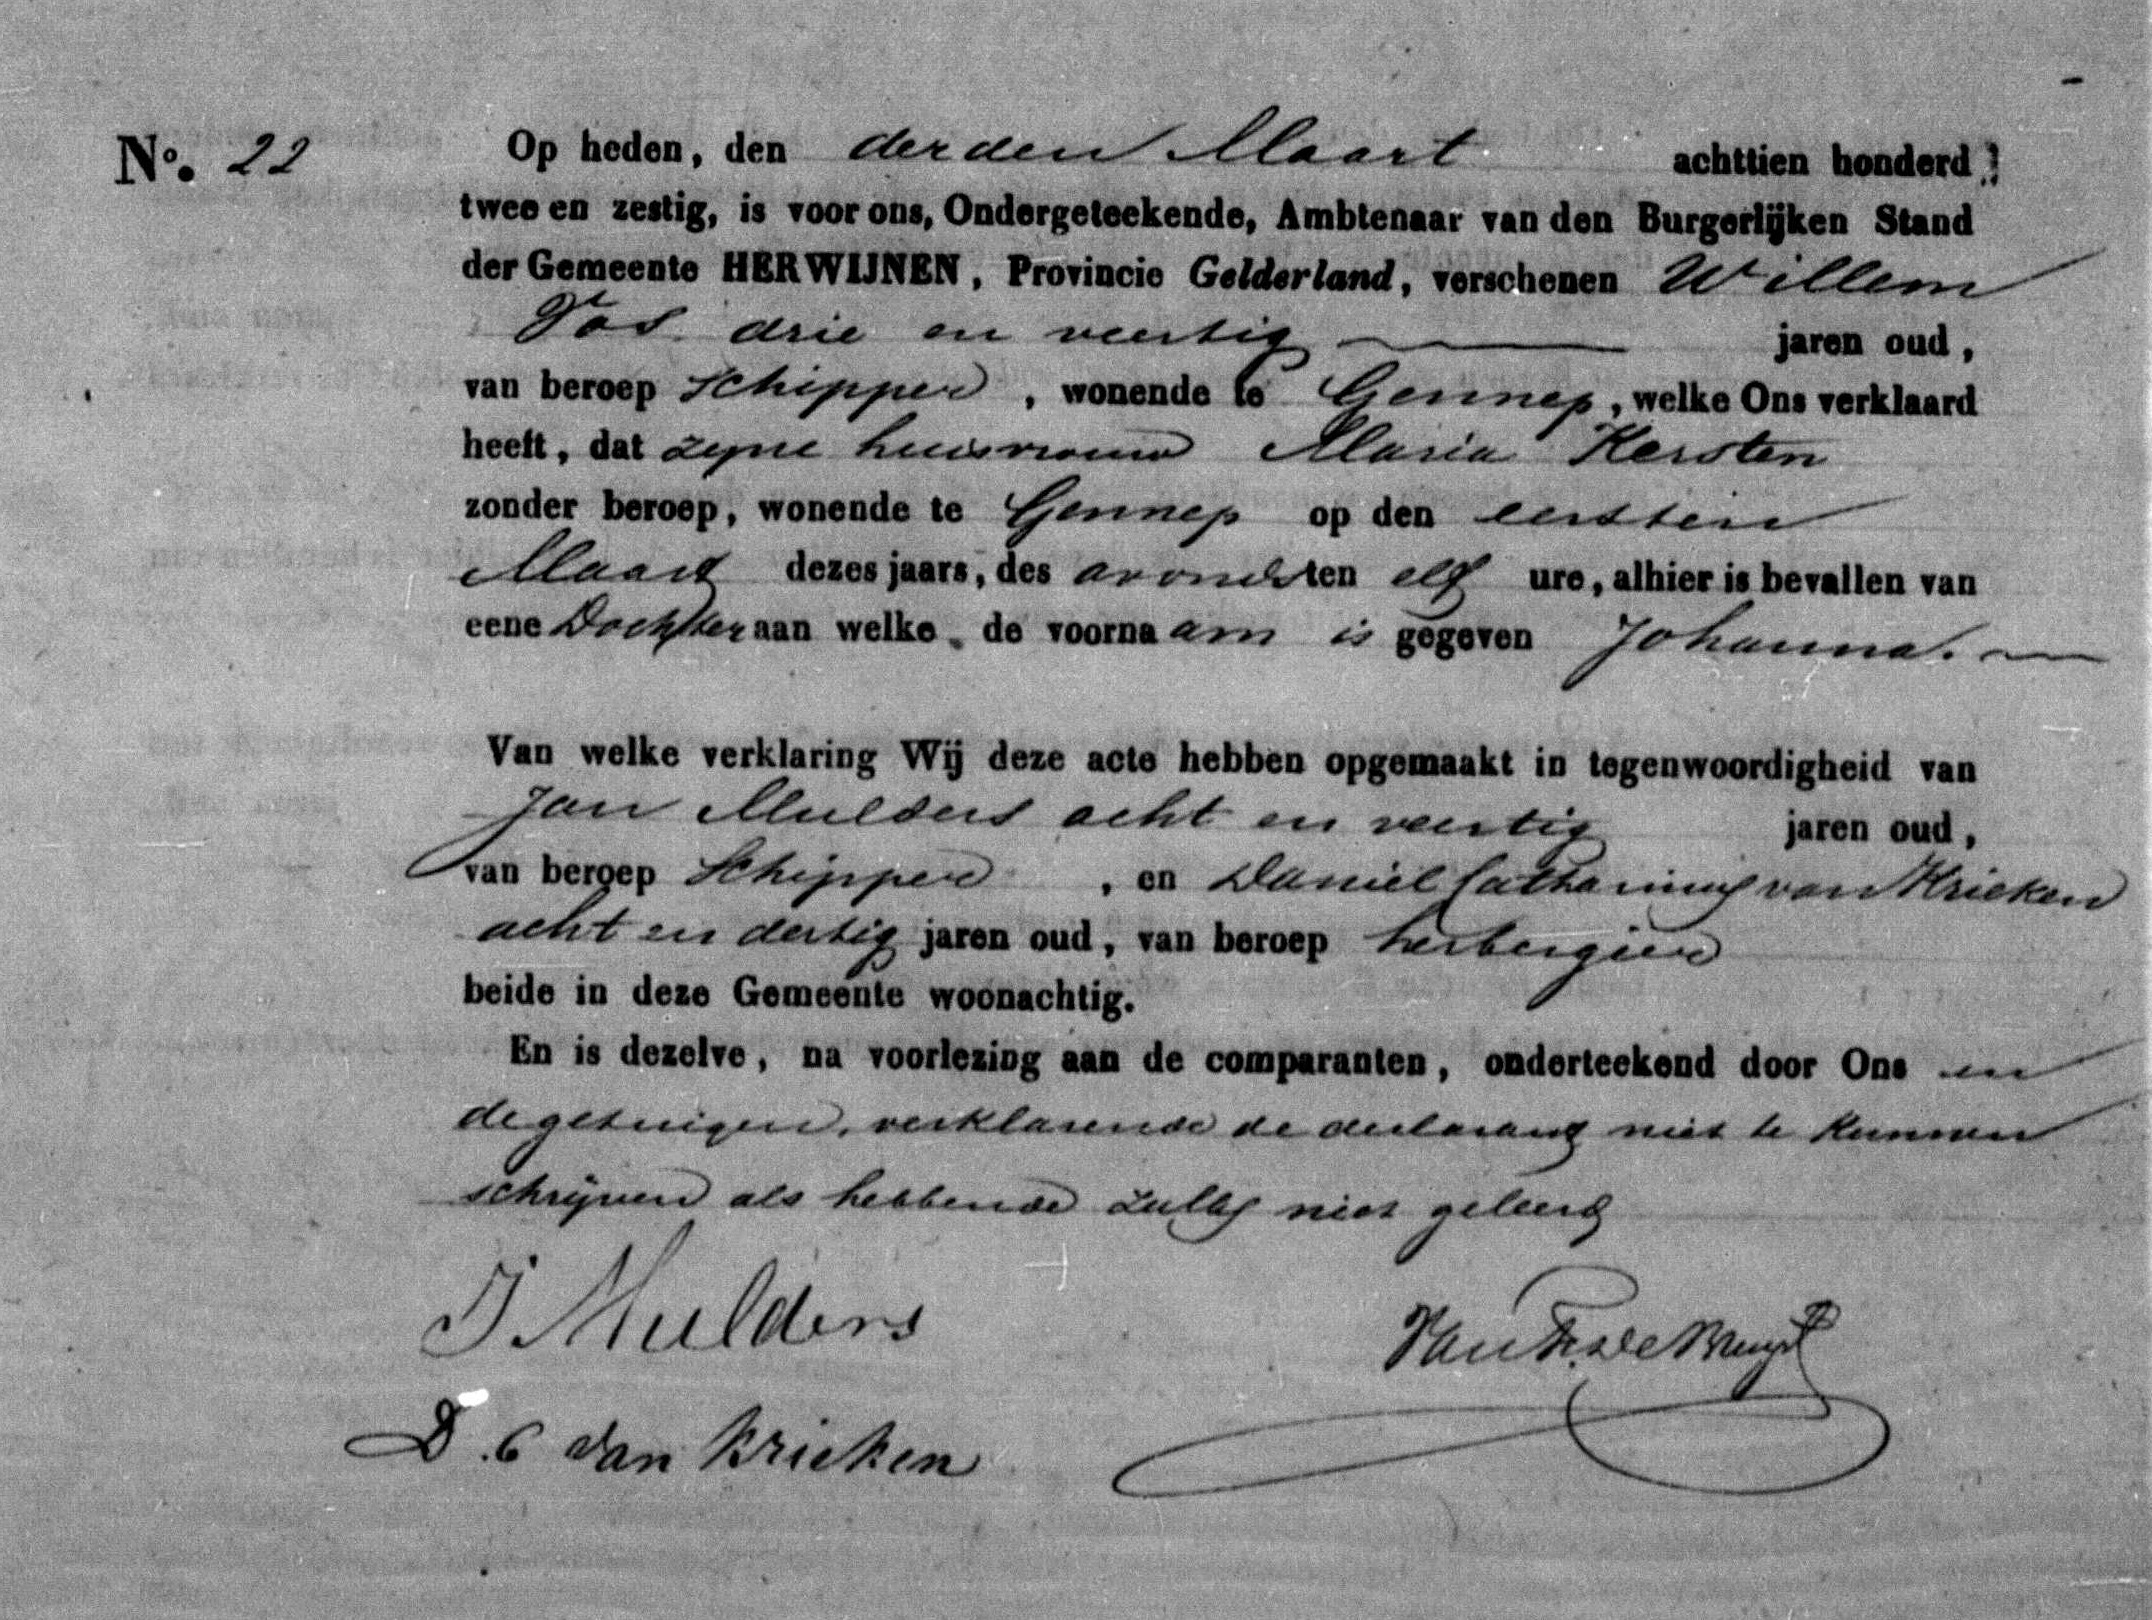 No. 22
Op heden, den derden Maart achttien honderd
twee en zestig, is voor ons, Ondergeteekende, Ambtenaar van den Burgerlijken Stand
der Gemeente HERWIJNEN, Provincie Gelderland, verschenen Willem
Vos drie en veertig jaren oud,
van beroep Schipper, wonende te Gennep, welke Ons verklaard
heeft, dat zyne huisvrouw Maria Kersten
zonder beroep, wonende te Gennep op den eersten
Maart dezes jaars, des avonds ten elf ure, alhier is bevallen van
eene Dochter aan welke de voornaam is gegeven Johanna.
Van welke verklaring Wij deze acte hebben opgemaakt in tegenwoordigheid van
Jan Mulders acht en veertig jaren oud,
van beroep Schipper, en Daniel Catharinus van Krieken
acht en dertig jaren oud, van beroep herbergier
beide in deze Gemeente woonachtig.
En is dezelve, na voorlezing aan de comparanten, onderteekend door Ons en
de getuigen, verklarende de declarant niet te kunnen
schrijven als hebbende zulks niet geleerd
J Mulders
D. C van Krieken